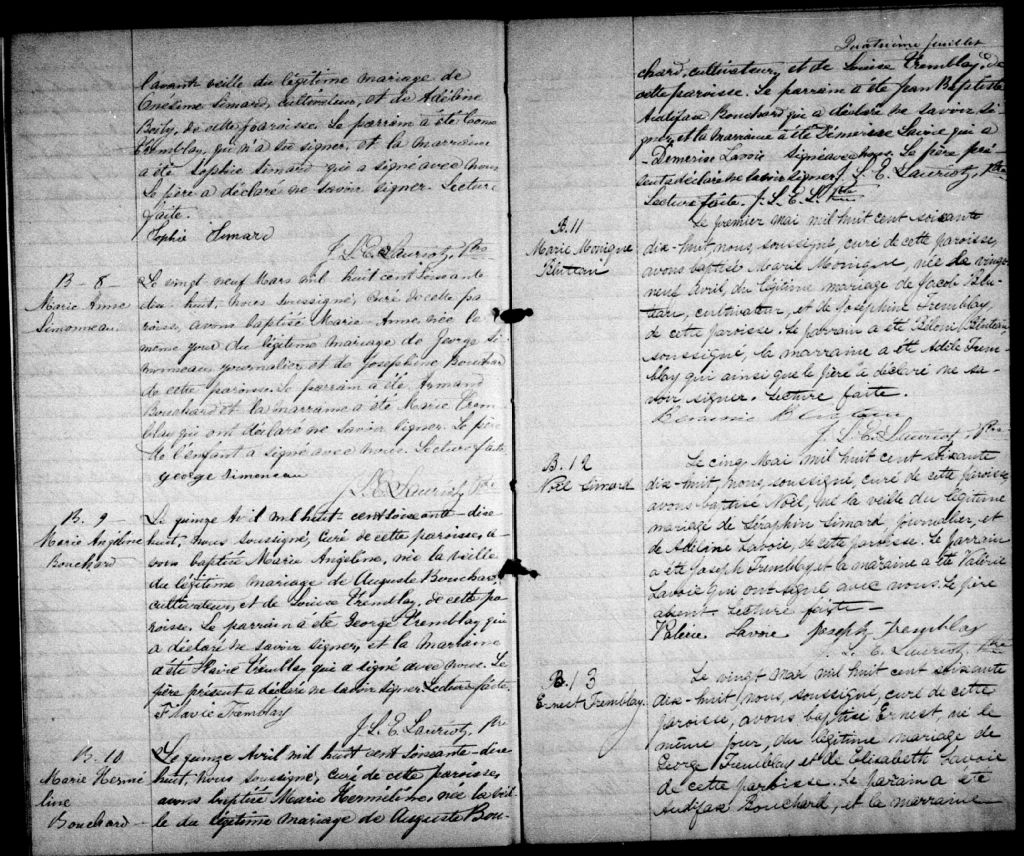 l'avant veille du légitime mariage de
Onésime Simard, cultivateur, et de Adéline
Boily, de cette paroisse. Le parrain a été
Tremblay, qui n'a su signer, et la marraine
a été Sophie Simard qui a signé avec nous.
Le père a déclaré ne savoir signer. Lecture
faite.
Sophie Simard
J. S. E. Lauriot, Ptre
B - 8 -
Marie Anne
Simoneau.
Le vingt neuf Mars mil huit cent soixante
dix huit, nous soussigné, curé de cette pa
roisse, avons baptisé Marie-Anne, née le
même jour du légitime mariage de George Si-
monneau, journalier, et de Josephine Bouchard
de cette paroisse. Le parrain a été Armand
Bouchard et la marraine a été Marie Trem-
blay qui ont déclaré ne savoir signer. Le père
de l'enfant a signé avec nous. Lecture faite.
george Simoneau
J. S. E. Lauriot, Ptre
B. 9 -
Marie Angéline
Bouchard
Le quinze Avril mil huit-cent soixante-dix-
huit, nous soussigné, curé de cette paroisse, a-
vons baptisé Marie Angéline, née la veille
du légitime mariage de Auguste Bouchard,
cultivateur, et de Louise Tremblay, de cette pa-
roisse. Le parrain a été George Tremblay qui
a déclaré ne savoir signer, et la marraine
a été Flavie Tremblay qui a signé avec nous. Le
père présent a déclaré ne savoir signer. Lecture faite.
Flavie Tremblay
J. S. E. Lauriot, Ptre
B. 10
Marie Hermé
line
Bouchard
Le quinze Avril mil huit cent soixante-dix-
huit, Nous soussigné, Curé de cette paroisse,
avons baptisé Marie Herméline, née la veil-
le du légitime mariage de Auguste Bou-
Quatrième feuillet
chard, cultivateur, et de Louise Tremblay, de
cette paroisse. Le parrain a été Jean Baptiste
Audifax Bouchard qui a déclaré ne savoir si-
gner, et la marraine a été Démerise Lavoie qui a
- Demerise Lavoie signé avec nous. Le père pré
sent a déclaré ne savoir signer. J. S. E. Lauriot, Ptre
Lecture faite. J. S. E. L. Ptre
B. 11
Marie Monique
Bluteau
Le premier mai mil huit cent soixante
dix-huit nous, soussigné, curé de cette paroisse,
avons baptisé Marie Monique, née le vingt
neuf Avril, du légitime mariage de Jacob Blu-
teau, cultivateur, et de Joséphine Tremblay
de cette paroisse. Le parrain a été Bluteau,
soussigné, la marraine a été Adèle Trem-
blay qui ainsi que le père a déclaré ne sa-
voir signer. Lecture faite.
J. S. E. Lauriot, Ptre
B. 12
Noël Simard
Le cinq Mai mil huit cent soixante
dix-huit, nous, soussigné, curé de cette paroisse,
avons baptisé Noël, né la veille du légitime
mariage de Séraphin Simard, journalier, et
de Adéline Lavoie, de cette paroisse. Le parrain
a été Joseph Tremblay et la maraine a été Valérie
Lavoie qui ont signé avec nous. Le père
absent. Lecture faite -
Valérie Lavoie Joseph Tremblay
J. S. E. Lauriot, Ptre
B. 13
Ernest Tremblay.
Le vingt mai mil huit cent soixante
dix-huit, nous, soussigné, curé de cette
paroisse, avons baptisé Ernest, né le
même jour, du légitime mariage de
George Tremblay et de Elisabeth Lavoie
de cette paroisse. Le parrain a été
Audifax Bouchard, et la marraine